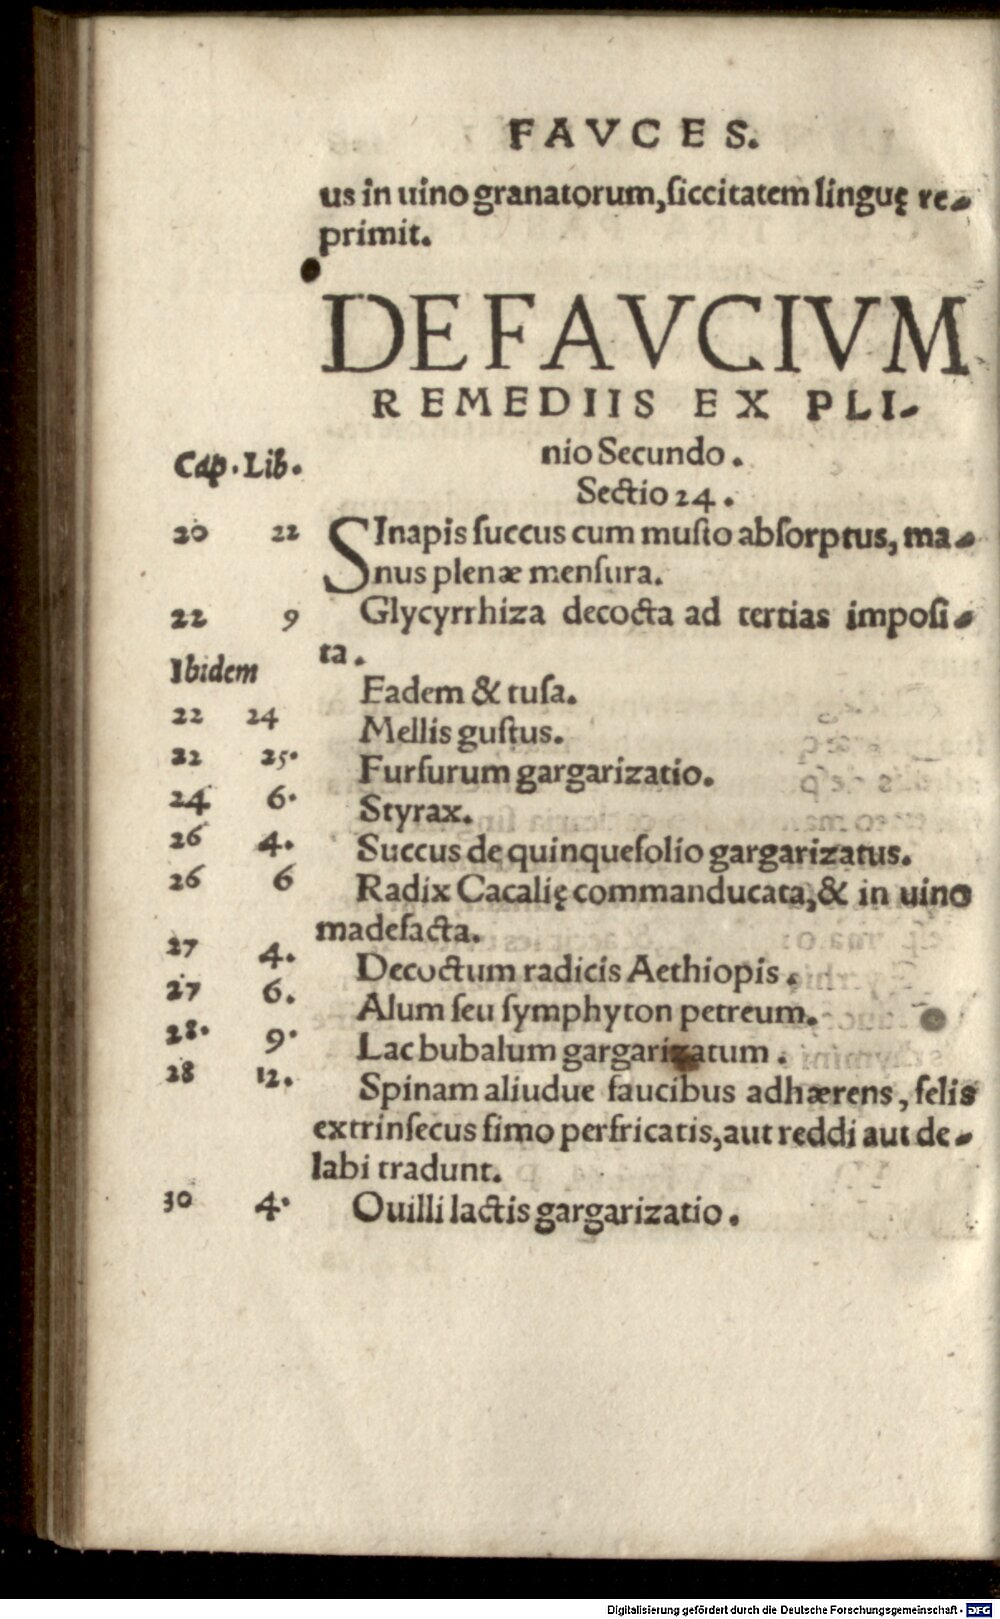 FAVCES.
us in uino granatorum, ſiccitatem linguę re-
primit.
DE FAVCIVM
REMEDIIS EX PLI-
nio Secundo.
Cap. Lib.
Sectio 24.
20 22 SInapis ſuccus cum muſto abſorptus, ma-
nus plenæ menſura.
22 9 Glycyrrhiza decocta ad tertias impoſi-
ta.
Ibidem Eadem & tuſa.
22 24 Mellis guſtus.
22 25. Furfurum gargarizatio.
24 6. Styrax.
26 4. Succus de quinquefolio gargarizatus.
26 6 Radix Cacalię commanducata, & in uino
madefacta.
27 4. Decoctum radicis Aethiopis.
27 6. Alum ſeu ſymphyton petreum.
28. 9. Lac bubalum gargarizatum.
28 12. Spinam aliudue faucibus adhærens, felis
extrinſecus fimo perfricatis, aut reddi aut de-
labi tradunt.
30 4. Ouilli lactis gargarizatio.
Digitalisierung gefördert durch die Deutsche Forschungsgemeinschaft - DFG